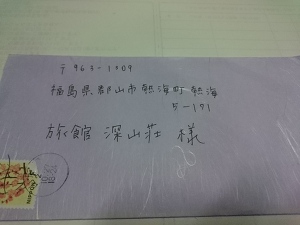 〒963-1309
福島県郡山市熱海町熱海
5-191
旅館 深山荘 様